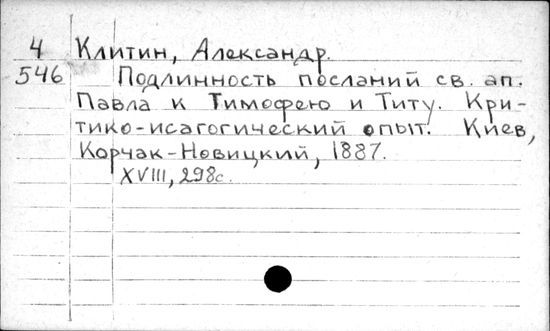 4 Клитин, Александр.
546 Подлинность посланий св. ап.
Павла к Тимофею и Титу. Кри-
тико-исагогический опыт. Киев,
Корчак-Новицкий, 1887.
XVIII, 298с.